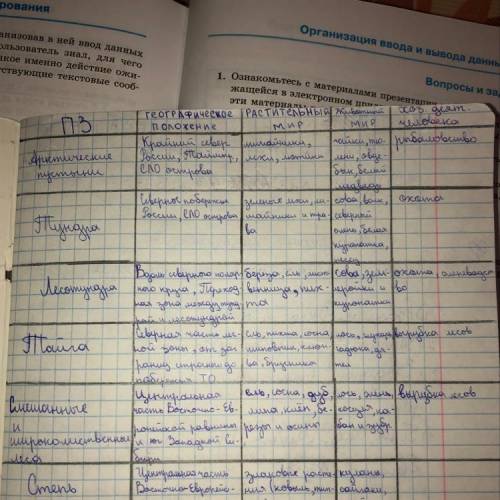 рования
Организация ввода и вывода данны
низовав в ней ввод данных
льзователь знал, для чего
кое именно действие ожи-
тствующие текстовые сооб-
Вопросы и за
1. Ознакомьтесь с материалами презентации
жащейся в электронном
эти материалы
ПЗ
ГЕОГРАФИЧЕСКОЕ
ПОЛОЖЕНИЕ
РАСТИТЕЛЬНЫЙ
МИР
ЖИВОТНЫЙ
МИР
хоз. деят.
человека
Арктические
пустыни
Крайний север
России, Таймыр,
СЛО острова
лишайники,
мхи,
чайки, тю-
лени, овце-
бык, белый
медведь
рыболовство
Тундра
Северное побережье
России, СЛО острова
зеленые мхи, ли-
шайники и тра-
ва
сова, волк,
северный
олень, белая
куропатка,
песец
охота
Лесотундра
Вдоль северного поляр-
ного круга, Переход-
ная зона между тунд-
рой и лесотундрой
береза, ель, лист-
венница, пих-
та
сова, зем-
леройки и
куропатки
охота, оленеводст-
во
Тайга
Северная часть лес-
ной зоны, от зап
границ страны до
побережья ТО
ель, пихта, сосна,
шиповник, клюк-
ва, брусника
лось,
гадюка, дя-
тел
вырубка лесов
Смешанные
и
широколиственные
леса
Центральная
часть Восточно-Ев-
ропейской равнины
и юг Западной Си-
бири
ель, сосна, дуб,
липа, клён, бе-
резы и осины
лось, олень,
косуля, ка-
бан и зубр.
вырубка лесов
Степь
Центральная часть
Восточно-Европейс-
злаковые расте-
ния (ковыль, тип-
куланы,
сайгаки,